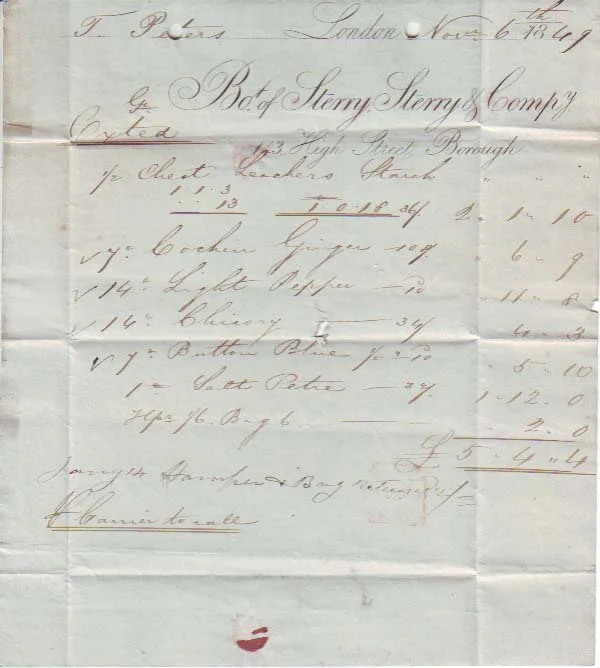 T. Peters London Novr 6th 1849
Bot. of Sterry, Sterry & Compy.
Oxted
143, High Street, Borough
1/2 Chest Leachers Starch " " "
1. 1. 3
.. 13 1. 0. 18 36/ 2 " 1 " 10
√ 7 " Cochin Ginger — " 6 " 9
√ 14 " Light Pepper — 10 " 11 " 8
√ 14 " Chicory — 34/ " 4 " 3
√ 7 " Button Blue 10 " 5 " 10
1 " Salt Petre — 1 " 12 " 0
Bag 6 — " 2 " 0
£ 5 " 4 " 4
Jany 14 Hamper & Bag returned
Carrier to call